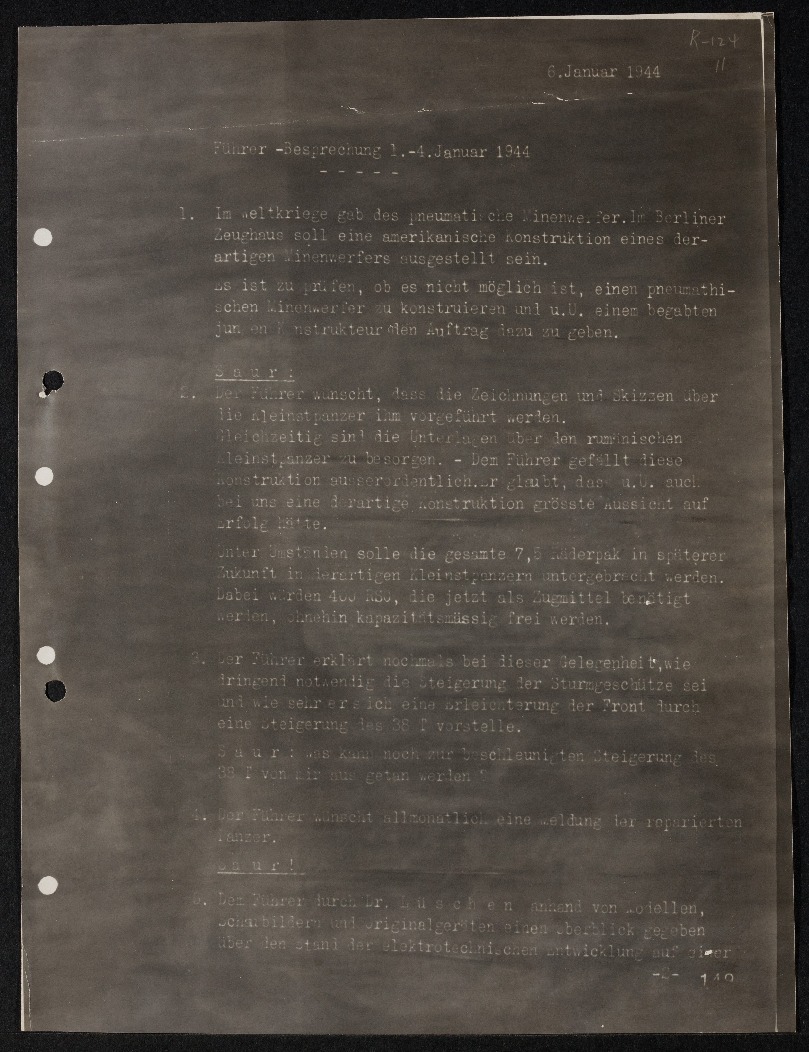 R-124
11
6.Januar 1944
Führer -Besprechung 1.-4.Januar 1944
- - - - -
1. Im Weltkriege gab des pneumatische Minenwerfer.Im Berliner
Zeughaus soll eine amerikanische Konstruktion eines der-
artigen Minenwerfers ausgestellt sein.
Es ist zu prüfen, ob es nicht möglich ist, einen pneumathi-
schen Minenwerfer zu konstruieren und u.U. einem begabten
jungen Konstrukteur den Auftrag dazu zu geben.
S a u r !
2. Der Führer wünscht, dass die Zeichnungen und Skizzen über
die Kleinstpanzer ihm vorgeführt werden.
Gleichzeitig sind die Unterlagen über den rumänischen
Kleinstpanzer zu besorgen. - Dem Führer gefällt diese
Konstruktion ausserordentlich.Er glaubt, dass u.U. auch
bei uns eine derartige Konstruktion grösste Aussicht auf
Erfolg hätte.
Unter Umständen solle die gesamte 7,5 Räderpak in späterer
Zukunft in derartigen Kleinstpanzern untergebracht werden.
Dabei würden 400 RSO, die jetzt als Zugmittel benötigt
werden, ohnehin kapazitätsmässig frei werden.
3. Der Führer erklärt nochmals bei dieser Gelegenheit,wie
dringend notwendig die Steigerung der Sturmgeschütze sei
und wie sehr er sich eine Erleichterung der Front durch
eine Steigerung des 38 T vorstelle.
S a u r : Was kann noch zur beschleunigten Steigerung des
38 T von mir aus getan werden ?
4. Der Führer wünscht allmonatlich eine Meldung der reparierten
Panzer.
S a u r !
5. Dem Führer durch Dr. L ü s c h e n anhand von Modellen,
Schaubildern und Originalgeräten einen Überblick gegeben
über den Stand der elektrotechnischen Entwicklung auf einer
-2-